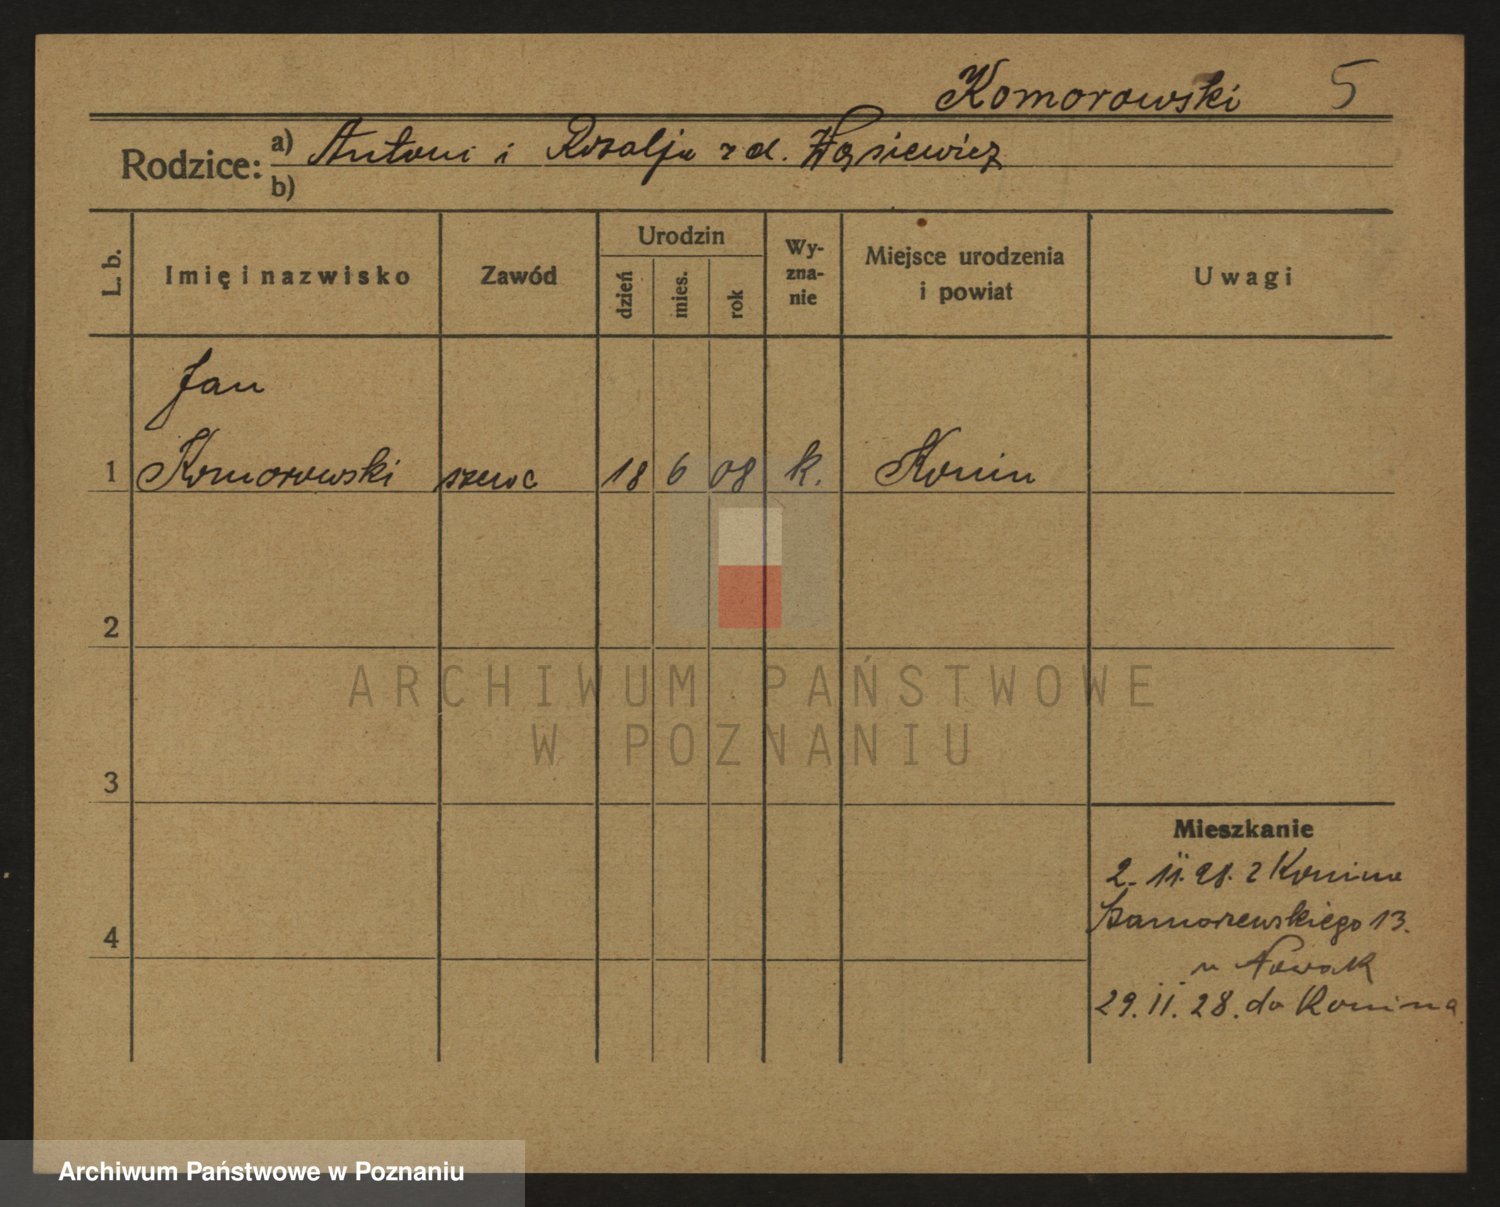 Komorowski 5
Rodzice: a) Antoni i Rozalja z d. Wąsiewicz
b)
L. b. Imię i nazwisko Zawód Urodzin dzień mies. rok Wyznanie Miejsce urodzenia i powiat Uwagi
Jan
1 Komorowski szewc 18 6 08 k. Konin
2
ARCHIWUM PAŃSTWOWE
W POZNANIU
3
Mieszkanie
2. 11. 28. z Konina
4 Szamarzewskiego 13.
u Nowak
29. 11. 28. do Konina
Archiwum Państwowe w Poznaniu